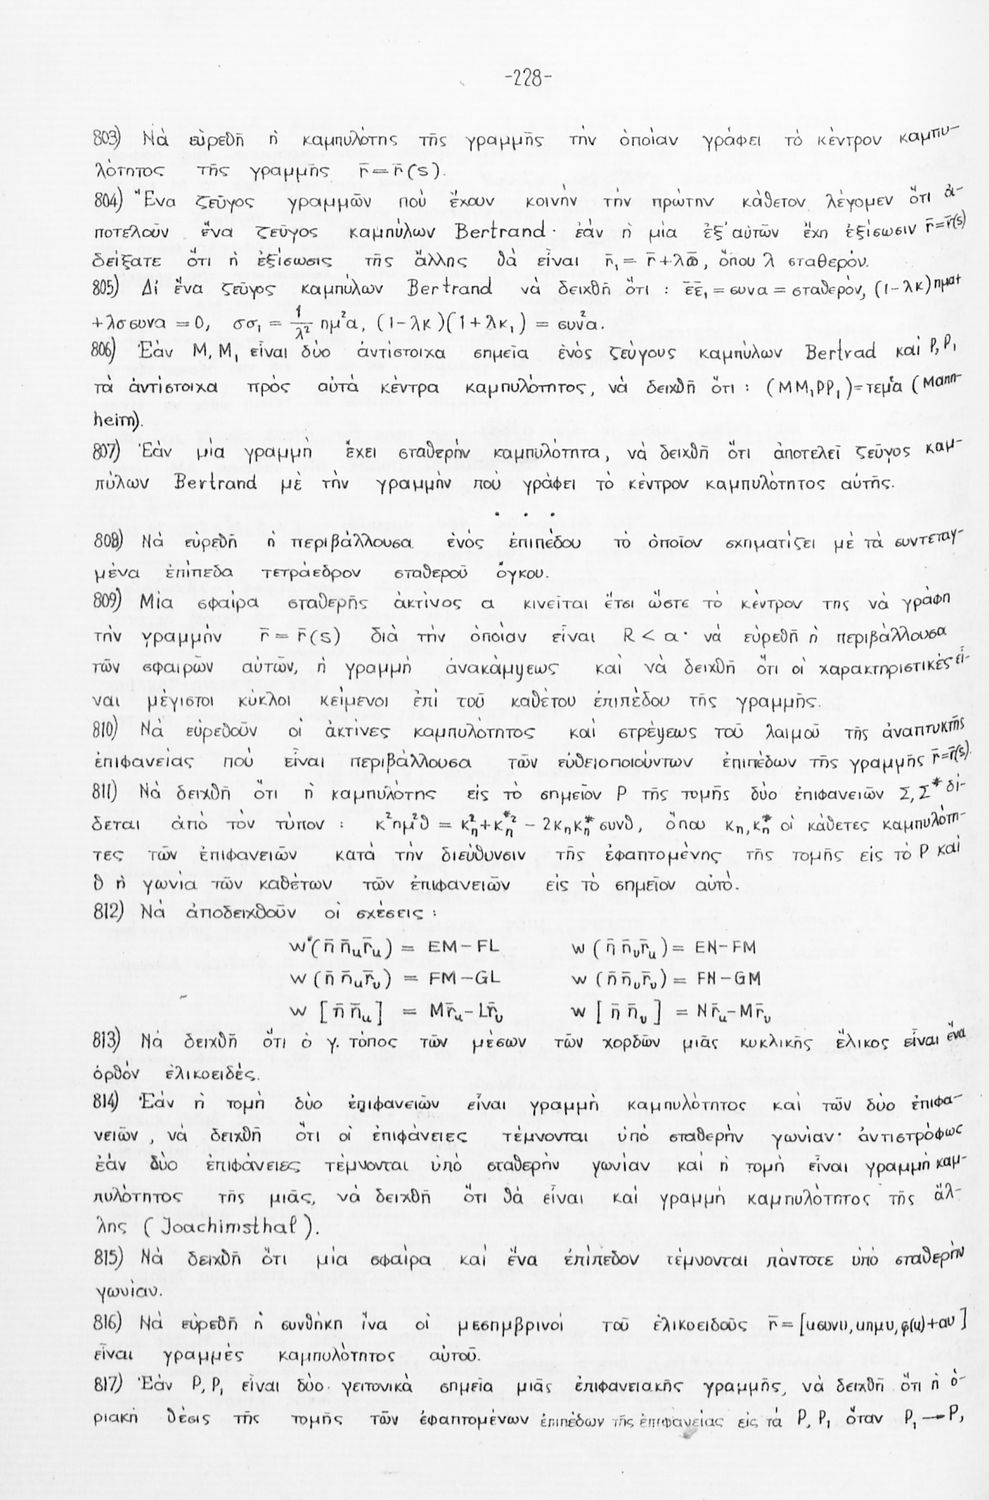 -228-
803) Νὰ εὑρεθῇ ἡ καμπυλότης τῆς γραμμῆς τὴν ὁποίαν γράφει τὸ κέντρον καμπυ-
λότητος τῆς γραμμῆς r̄ = r̄(s).
804) Ἕνα ζεῦγος γραμμῶν ποὺ ἔχουν κοινὴν τὴν πρώτην κάθετον λέγομεν ὅτι ἀ-
ποτελοῦν ἕνα ζεῦγος καμπύλων Bertrand· ἐὰν ἡ μία ἐξ' αὐτῶν ἔχῃ ἐξίσωσιν r̄=r̄(s)
δείξατε ὅτι ἡ ἐξίσωσις τῆς ἄλλης θὰ εἶναι r̄₁ = r̄+λω̄, ὅπου λ σταθερόν.
805) Δι' ἕνα ζεῦγος καμπύλων Bertrand νὰ δειχθῇ ὅτι : ε̄ε̄₁ = συνα = σταθερόν, (1-λκ)ημα+
+λσσυνα = 0, σσ₁ = 1/λ² ημ²α, (1-λκ)(1+λκ₁) = συν²α.
806) Ἐὰν Μ, Μ₁ εἶναι δύο ἀντίστοιχα σημεῖα ἑνὸς ζεύγους καμπύλων Bertrad καὶ Ρ, Ρ₁
τὰ ἀντίστοιχα πρὸς αὐτὰ κέντρα καμπυλότητος, νὰ δειχθῇ ὅτι : (ΜΜ₁ΡΡ₁)=τεμ²α (Mann-
heim).
807) Ἐὰν μία γραμμὴ ἔχει σταθερὴν καμπυλότητα, νὰ δειχθῇ ὅτι ἀποτελεῖ ζεῦγος καμ-
πύλων Bertrand μὲ τὴν γραμμὴν ποὺ γράφει τὸ κέντρον καμπυλότητος αὐτῆς.
. . .
808) Νὰ εὑρεθῇ ἡ περιβάλλουσα ἑνὸς ἐπιπέδου τὸ ὁποῖον σχηματίζει μὲ τὰ συντεταγ-
μένα ἐπίπεδα τετράεδρον σταθεροῦ ὄγκου.
809) Μία σφαῖρα σταθερῆς ἀκτίνος α κινεῖται ἔτσι ὥστε τὸ κέντρον της νὰ γράφῃ
τὴν γραμμὴν r̄ = r̄(s) διὰ τὴν ὁποίαν εἶναι R < α· νὰ εὑρεθῇ ἡ περιβάλλουσα
τῶν σφαιρῶν αὐτῶν, ἡ γραμμὴ ἀνακάμψεως καὶ νὰ δειχθῇ ὅτι οἱ χαρακτηριστικὲς εἶ-
ναι μέγιστοι κύκλοι κείμενοι ἐπὶ τοῦ καθέτου ἐπιπέδου τῆς γραμμῆς.
810) Νὰ εὑρεθοῦν οἱ ἀκτίνες καμπυλότητος καὶ στρέψεως τοῦ λαιμοῦ τῆς ἀναπτυκτῆς
ἐπιφανείας ποὺ εἶναι περιβάλλουσα τῶν εὐθειοποιούντων ἐπιπέδων τῆς γραμμῆς r̄=r̄(s).
811) Νὰ δειχθῇ ὅτι ἡ καμπυλότης εἰς τὸ σημεῖον Ρ τῆς τομῆς δύο ἐπιφανειῶν Σ, Σ* δί-
δεται ἀπὸ τὸν τύπον : κ²ημ²θ = κη²+κη*² - 2κηκη*συνθ, ὅπου κη, κη* οἱ κάθετες καμπυλότη-
τες τῶν ἐπιφανειῶν κατὰ τὴν διεύθυνσιν τῆς ἐφαπτομένης τῆς τομῆς εἰς τὸ Ρ καὶ
θ ἡ γωνία τῶν καθέτων τῶν ἐπιφανειῶν εἰς τὸ σημεῖον αὐτό.
812) Νὰ ἀποδειχθοῦν οἱ σχέσεις :
w(η̄ η̄ᵤ r̄ᵤ) = EM-FL w(η̄ η̄ᵥ r̄ᵤ) = EN-FM
w(η̄ η̄ᵤ r̄ᵥ) = FM-GL w(η̄ η̄ᵥ r̄ᵥ) = FN-GM
w[η̄ η̄ᵤ] = Mr̄ᵤ-Lr̄ᵥ w[η̄ η̄ᵥ] = Nr̄ᵤ-Mr̄ᵥ
813) Νὰ δειχθῇ ὅτι ὁ γ. τόπος τῶν μέσων τῶν χορδῶν μιᾶς κυκλικῆς ἕλικος εἶναι ἕνα
ὀρθὸν ἑλικοειδές.
814) Ἐὰν ἡ τομὴ δύο ἐπιφανειῶν εἶναι γραμμὴ καμπυλότητος καὶ τῶν δύο ἐπιφα-
νειῶν, νὰ δειχθῇ ὅτι οἱ ἐπιφάνειες τέμνονται ὑπὸ σταθερὴν γωνίαν· ἀντιστρόφως
ἐὰν δύο ἐπιφάνειες τέμνονται ὑπὸ σταθερὴν γωνίαν καὶ ἡ τομὴ εἶναι γραμμὴ καμ-
πυλότητος τῆς μιᾶς, νὰ δειχθῇ ὅτι θὰ εἶναι καὶ γραμμὴ καμπυλότητος τῆς ἄλ-
λης (Joachimsthal).
815) Νὰ δειχθῇ ὅτι μία σφαῖρα καὶ ἕνα ἐπίπεδον τέμνονται πάντοτε ὑπὸ σταθερὴν
γωνίαν.
816) Νὰ εὑρεθῇ ἡ συνθήκη ἵνα οἱ μεσημβρινοὶ τοῦ ἑλικοειδοῦς r̄ = [uσυνυ, uημυ, φ(u)+αυ]
εἶναι γραμμὲς καμπυλότητος αὐτοῦ.
817) Ἐὰν Ρ, Ρ₁ εἶναι δύο γειτονικὰ σημεῖα μιᾶς ἐπιφανειακῆς γραμμῆς, νὰ δειχθῇ ὅτι ἡ ὁ-
ριακὴ θέσις τῆς τομῆς τῶν ἐφαπτομένων ἐπιπέδων τῆς ἐπιφανείας εἰς τὰ Ρ, Ρ₁ ὅταν Ρ₁→Ρ,